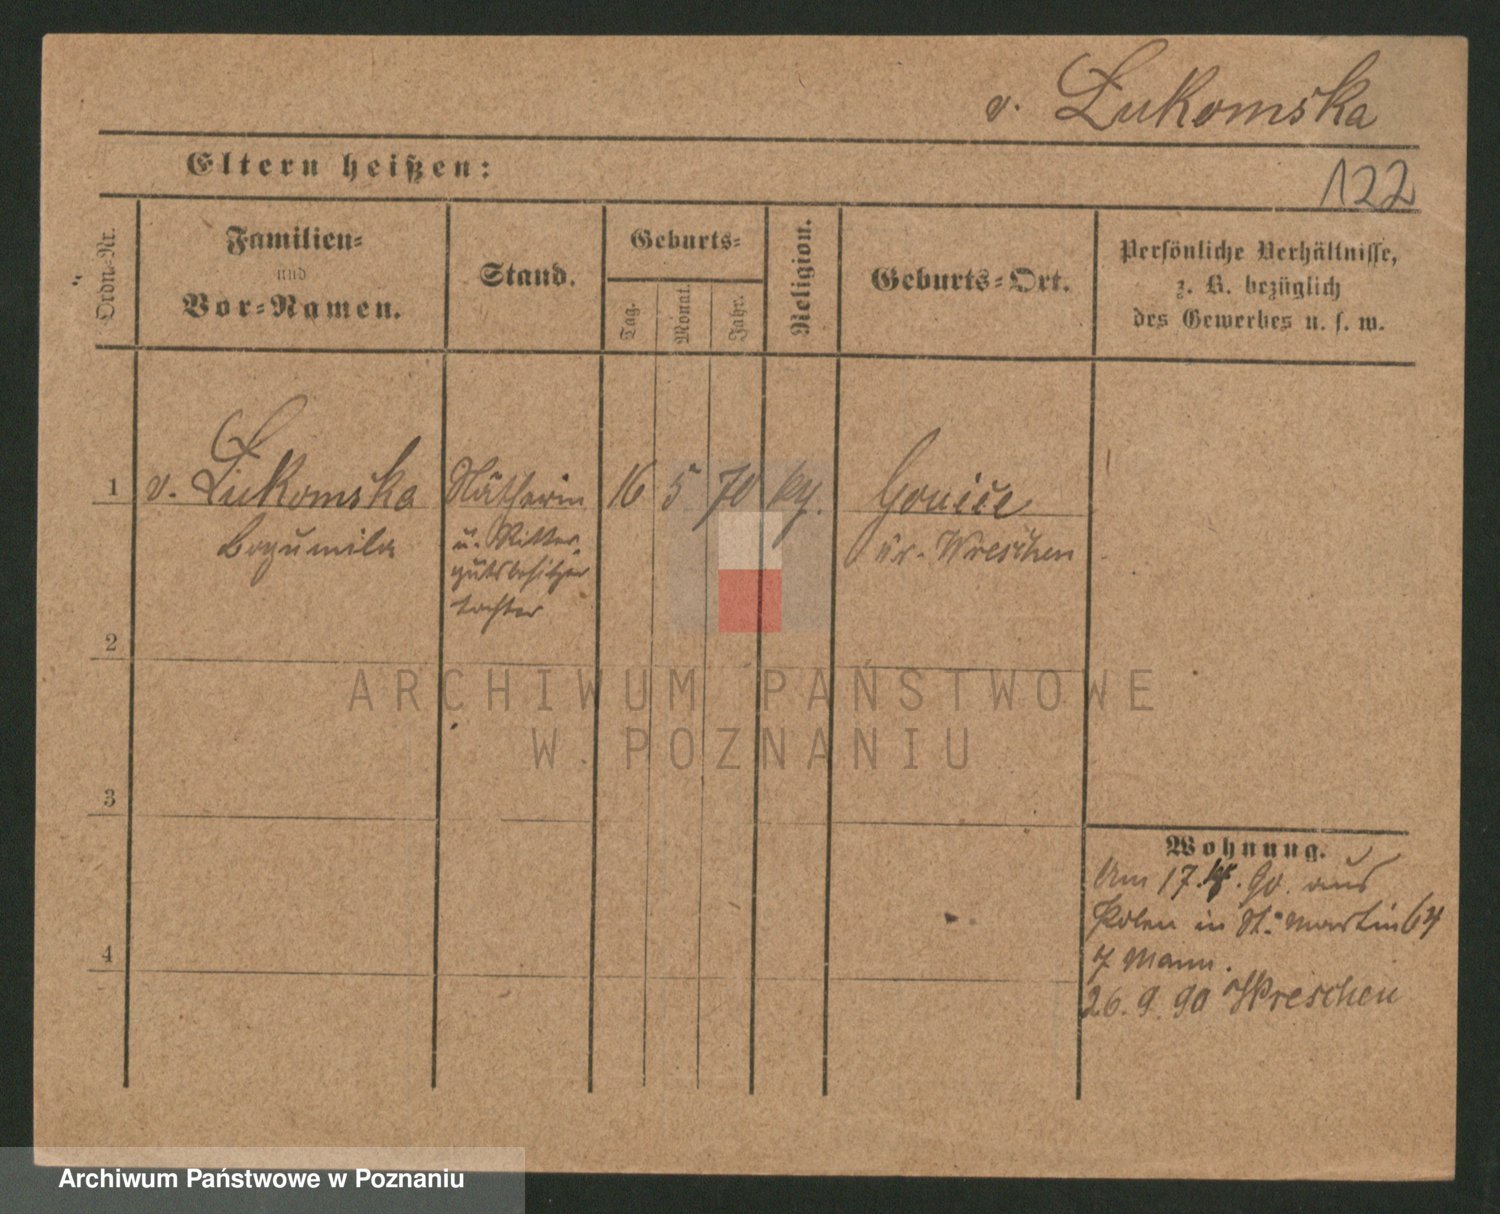 v. Łukomska
Eltern heißen:
122
Ordn.-Nr.
Familien-
und
Vor-Namen.
Stand.
Geburts-
Tag.
Monat.
Jahr.
Religion.
Geburts-Ort.
Persönliche Verhältnisse,
z. B. bezüglich
des Gewerbes u. s. w.
1
v. Łukomska
Bogumila
Nätherin
u. Ritter-
gutsbesitzer
tochter
16
5
70
Gonice
Wreschen
2
3
4
Wohnung.
Am 17. 90. aus
Polen in St. Martin 64
Mann.
26. 9. 90 Wreschen
ARCHIWUM PAŃSTWOWE
W POZNANIU
Archiwum Państwowe w Poznaniu